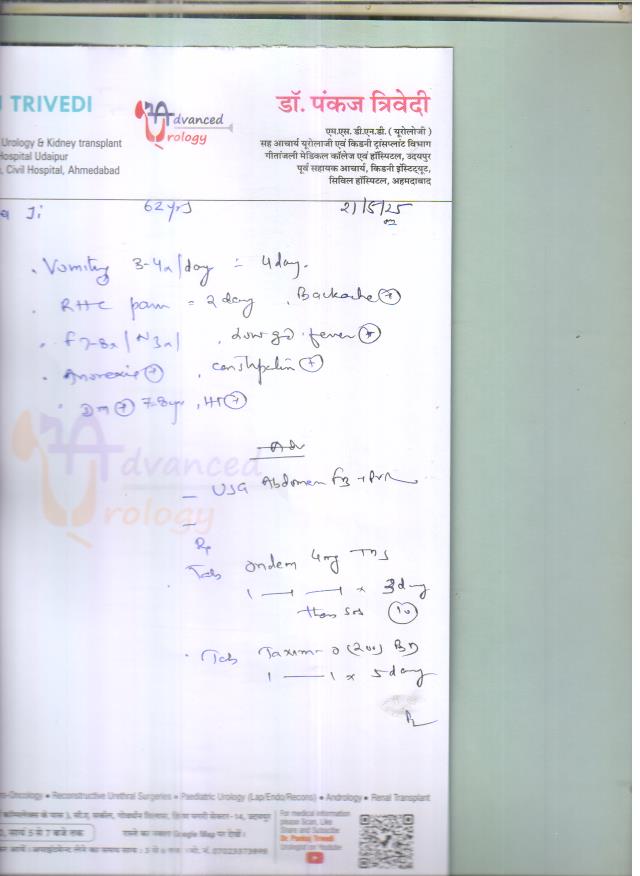 TRIVEDI
Advanced
Urology
डॉ. पंकज त्रिवेदी
Urology & Kidney transplant
Hospital Udaipur
, Civil Hospital, Ahmedabad
एम.एस. डी.एन.बी. ( यूरोलोजी )
सह आचार्य यूरोलाजी एवं किडनी ट्रांसप्लांट विभाग
गीतांजली मेडिकल कॉलेज एवं हॉस्पिटल, उदयपुर
पूर्व सहायक आचार्य, किडनी इंस्टिट्यूट,
सिविल हॉस्पिटल, अहमदाबाद
Ji 62 yrs 21/5/25
. Vomiting 3-4x/day = 4 day.
. RHC pain = 2 day . Backache +
. F 7-8x / N 3x / . Low gd. fever +
. Anorexia + . Constipation +
. DM + 7-8yr, HT +
Adv
Advanced
Urology
– USG Abdomen
–
Rx
Tab Ondem 4mg TDS
1 — 1 — 1 x 3 day
then sos 10
. Tab Taxim-O (200) BD
1 — 1 x 5 day
-Oncology • Reconstructive Urethral Surgeries • Paediatric Urology (Lap/Endo/Recons) • Andrology • Renal Transplant
सेक्टर - 14, उदयपुर
, सायं 5 से 7 बजे तक
Google Map पर देखें।
For medical information
please Scan, Like
Share and Subscribe
Dr. Pankaj Trivedi
Urologist on Youtube